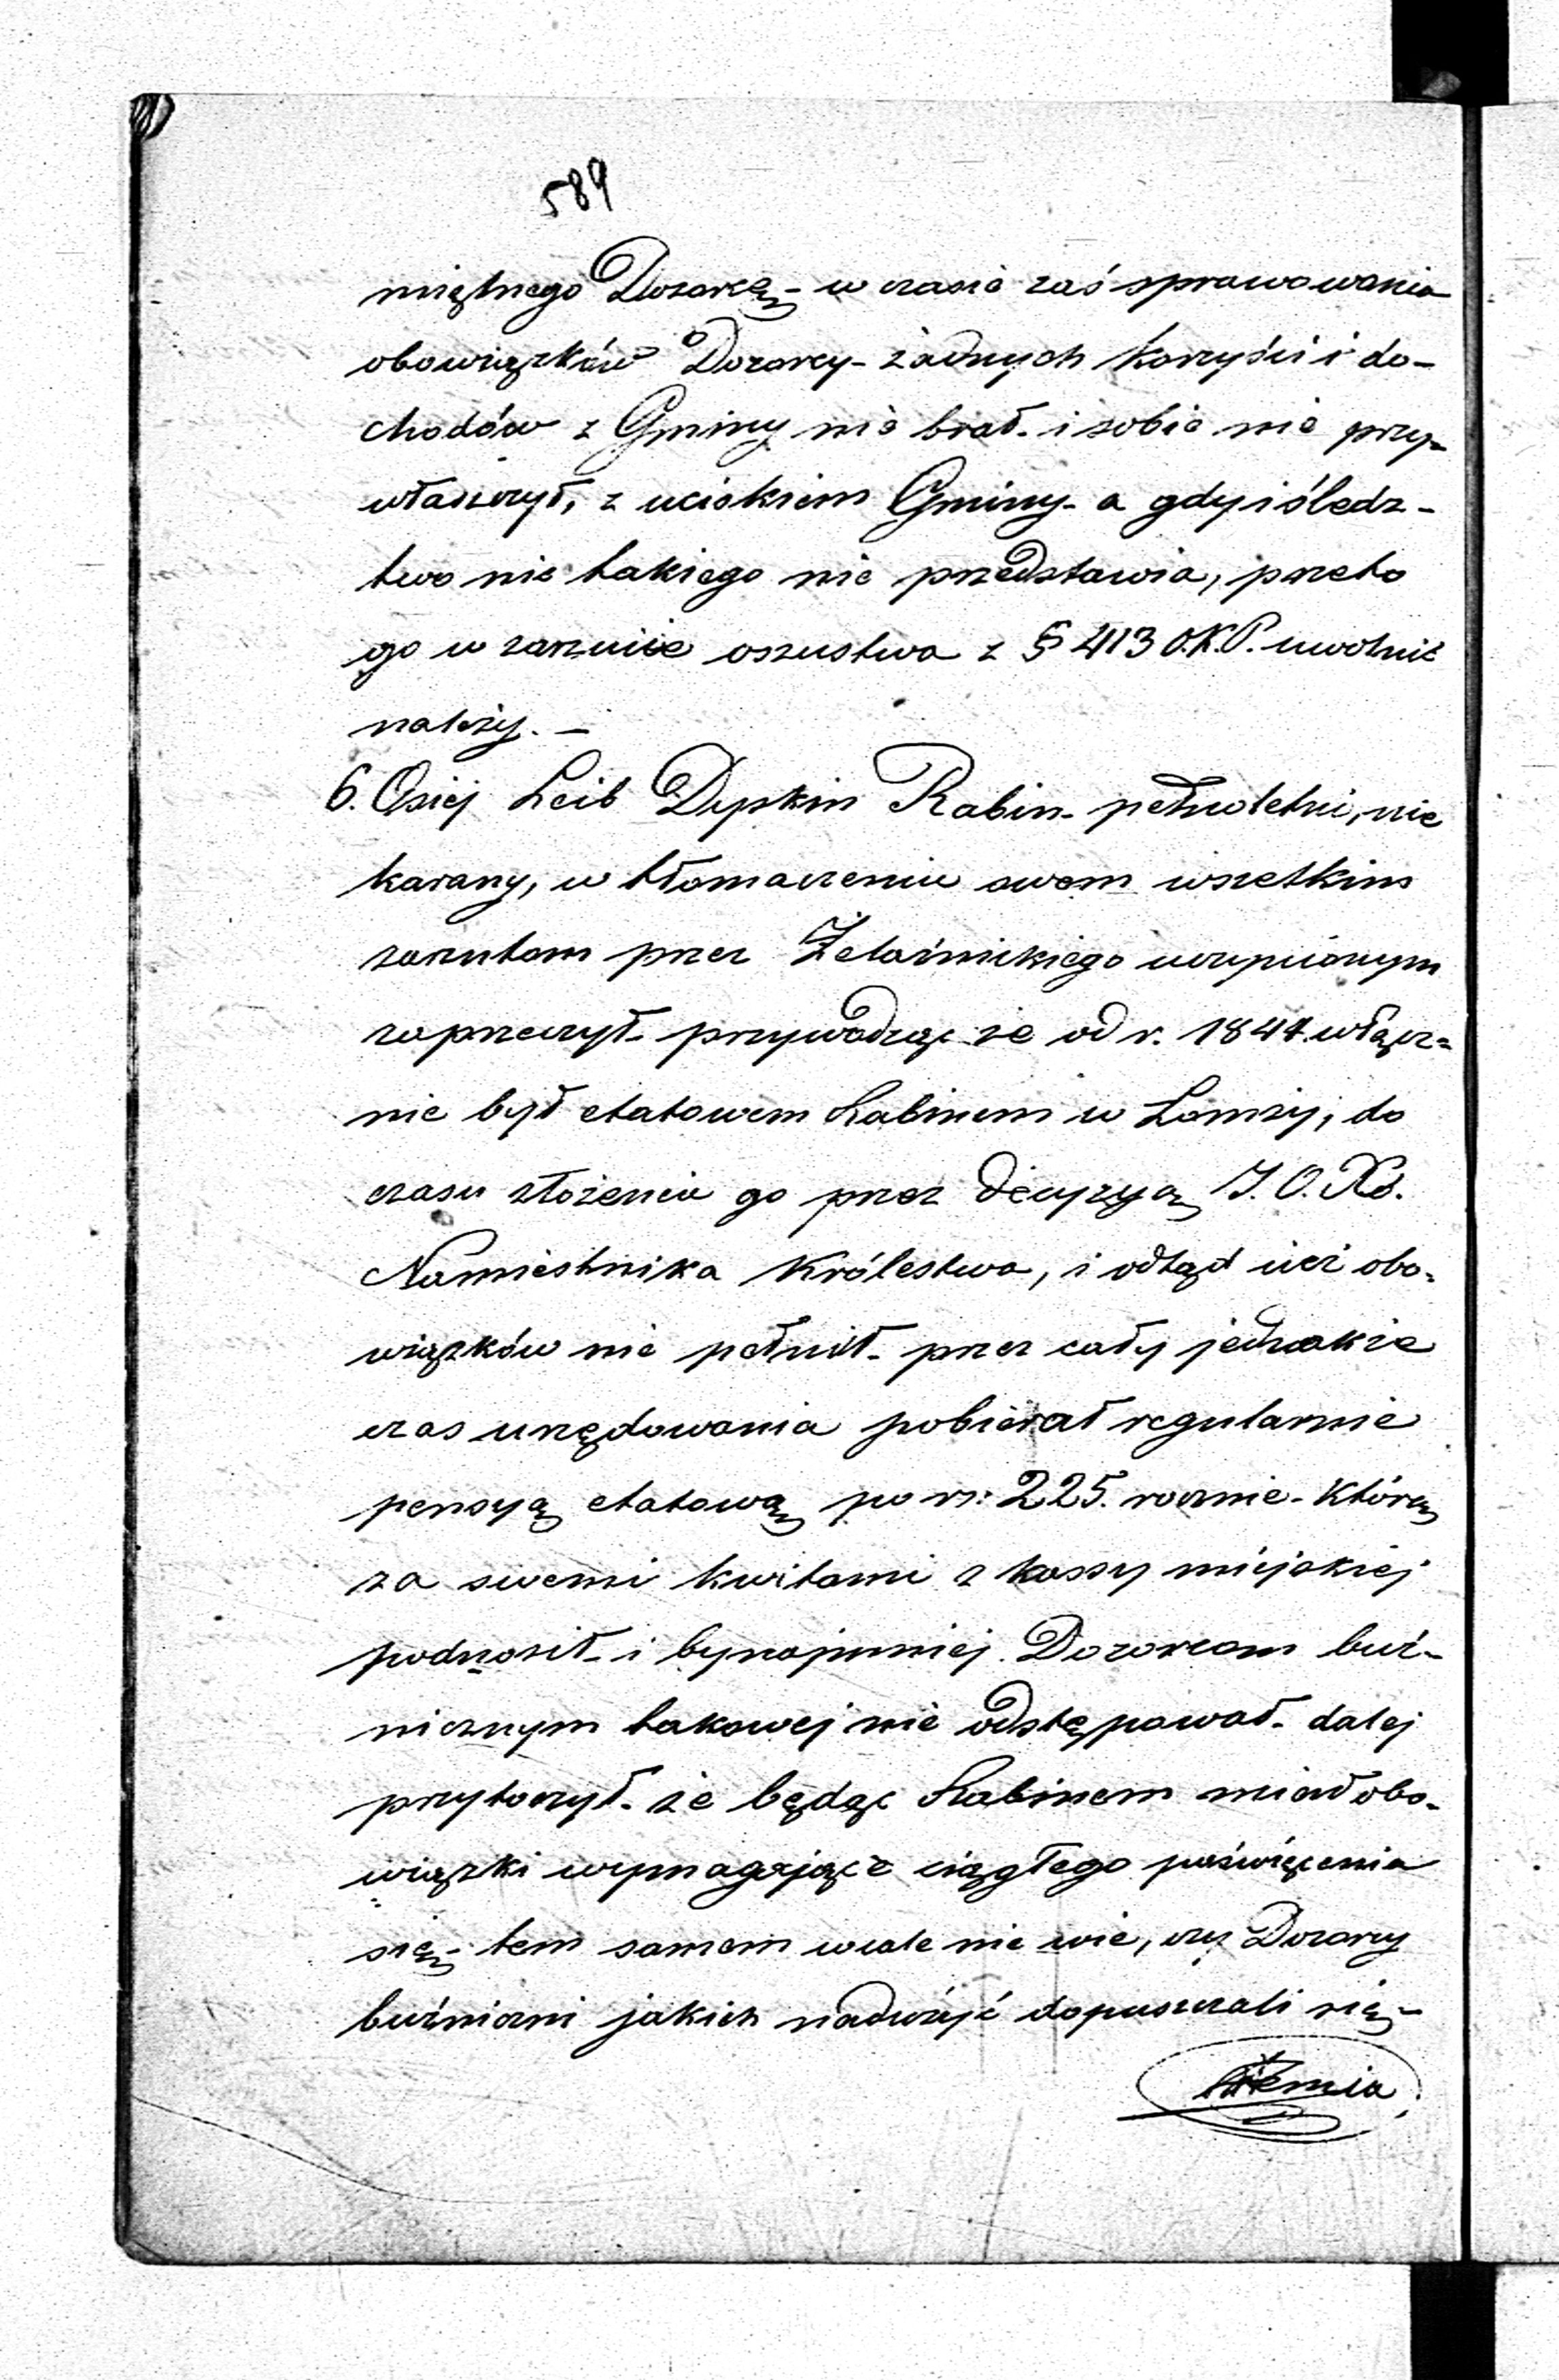 589
miętnego Dozorcę – w czasie zaś sprawowania
obowiązków Dozorcy – żadnych korzyści i do-
chodów z Gminy nie brał – i sobie nie przy-
właszczył, z uciskiem Gminy – a gdy i śledz-
two nic takiego nie przedstawia, przeto
go w zarzucie oszustwa z § 413 O.K.P. uwolnić
należy. –
6. Osiej Leib Dypkin Rabin – pełnoletni, nie
karany, w tłomaczeniu swem wszelkim
zarzutom przez Żelaźnickiego uczynionym
zaprzeczył – przywodząc że od r. 1844. włącz=
nie był etatowem Rabinem w Łomży, do
czasu złożenia go przez decyzyą J. O. Xs.
Namiestnika Królestwa, i odtąd już obo-
wiązków nie pełnił – przez cały jednakże
czas urzędowania pobierał regularnie
pensyą etatową po rs: 225. rocznie – którą
za swemi kwitami z kassy miejskiej
podnosił – i bynajmniej Dozorcom buź-
nicznym takowej nie odstępował – dalej
przytoczył – że będąc Rabinem miał obo-
wiązki wymagające ciągłego poświęcenia
się – tem samem wcale nie wie, czy Dozorcy
buźniczni jakich nadużyć dopuszczali się –